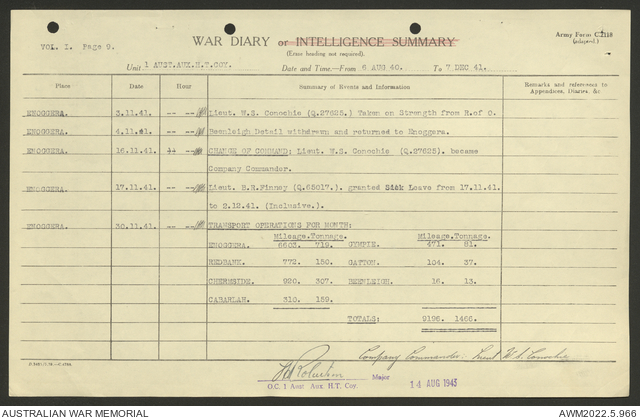 Army Form C.2118
(adapted.)
VOL. I. Page 9.
WAR DIARY or INTELLIGENCE SUMMARY
(Erase heading not required).
Unit 1 AUST.AUX.H.T.COY. Date and Time—From 6 AUG 40. To 7 DEC 41.
Place Date Hour Summary of Events and Information Remarks and references to Appendices, Diaries, &c
ENOGGERA. 3.11.41. -- -- Lieut. W.S. Conochie (Q.27625.) Taken on Strength from R.of O.
ENOGGERA. 4.11.41. -- -- Beenleigh Detail withdrawn and returned to Enoggera.
ENOGGERA. 16.11.41. CHANGE OF COMMAND: Lieut. W.S. Conochie (Q.27625). became
Company Commander.
ENOGGERA. 17.11.41. -- -- Lieut. B.R.Finney (Q.65017.). granted Sick Leave from 17.11.41.
to 2.12.41. (Inclusive.).
ENOGGERA. 30.11.41. -- -- TRANSPORT OPERATIONS FOR MONTH:
Mileage.Tonnage. Mileage.Tonnage.
ENOGGERA. 6603. 719. GYMPIE. 471. 81.
REDBANK. 772. 150. GATTON. 104. 37.
CHERMSIDE. 920. 307. BEENLEIGH. 16. 13.
CABARLAH. 310. 159.
TOTALS: 9196. 1466.
Company Commander Lieut W.S. Conochie
Major
O.C. 1 Aust Aux. H.T. Coy.
14 AUG 1945
AUSTRALIAN WAR MEMORIAL
AWM2022.5.966